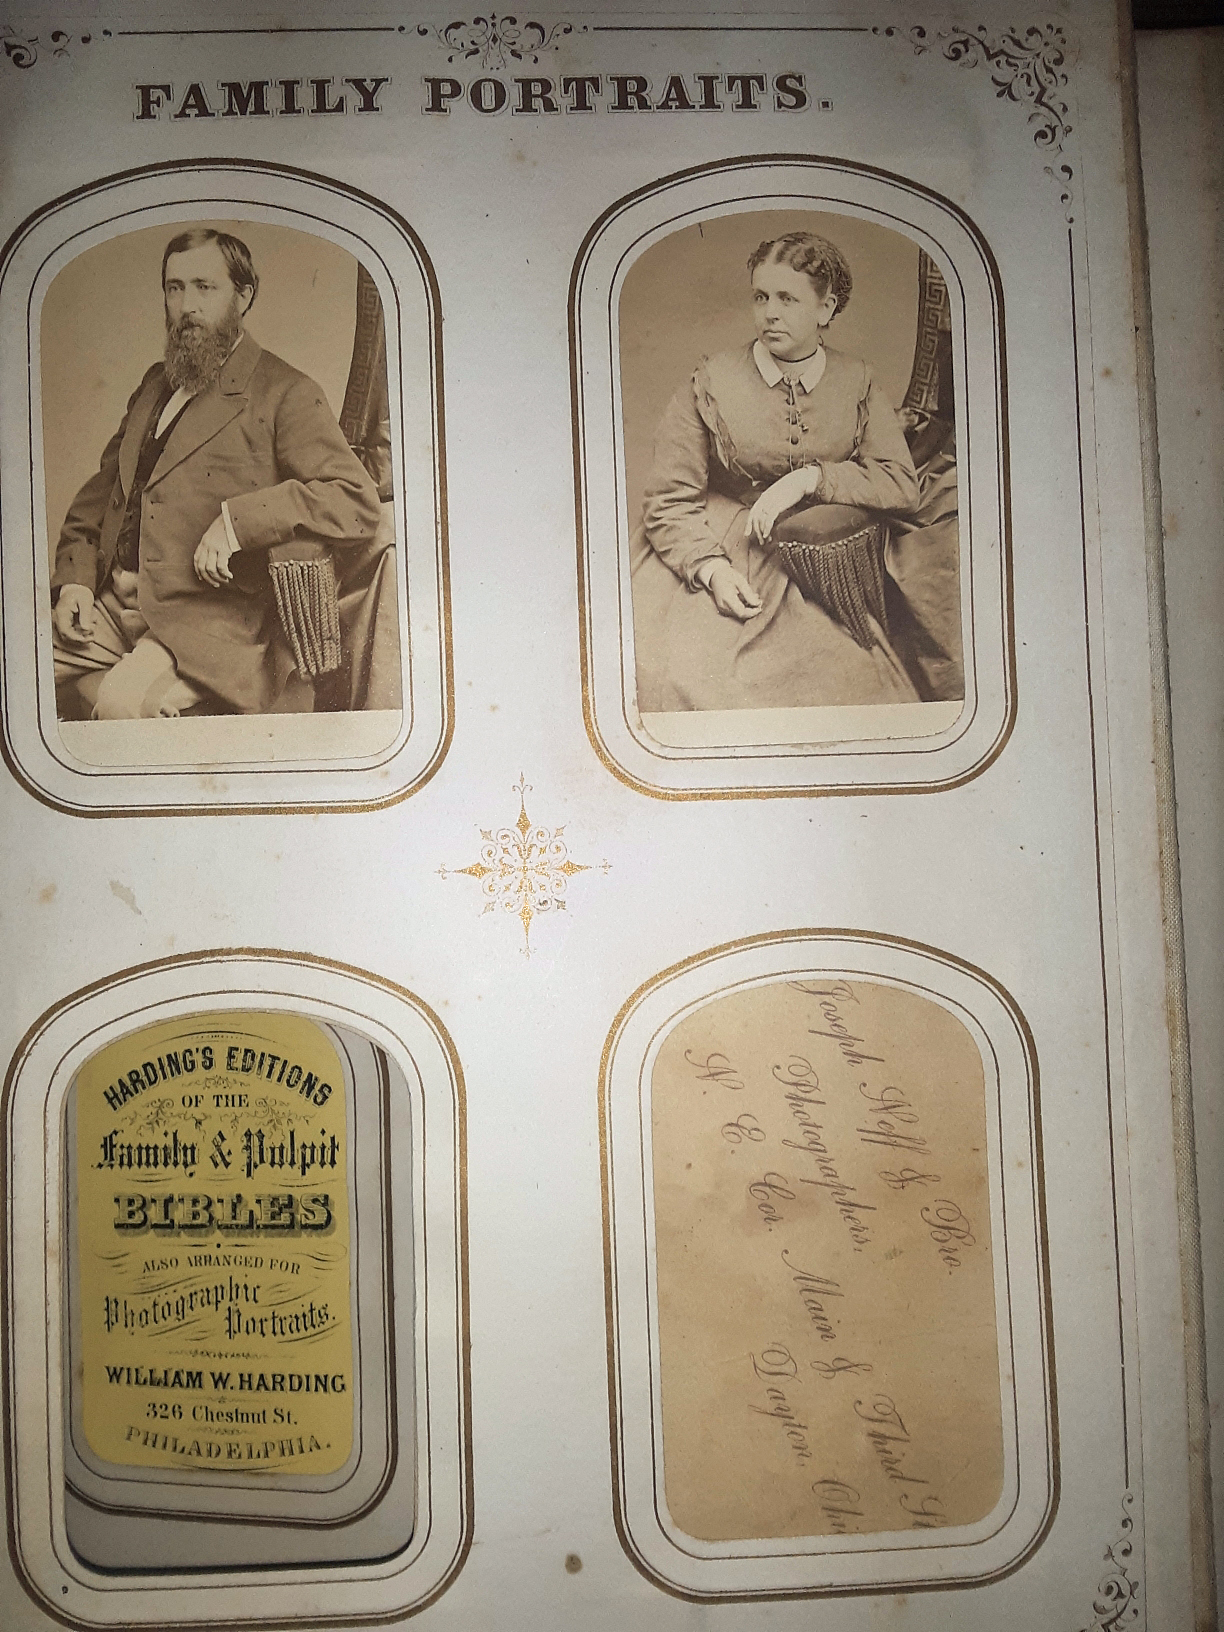 FAMILY PORTRAITS.
HARDING'S EDITIONS
OF THE
Family & Pulpit
BIBLES
ALSO ARRANGED FOR
Photographic
Portraits.
WILLIAM W. HARDING
326 Chestnut St.
PHILADELPHIA.
Joseph Neff & Bro.
Photographers,
N. E. Cor. Main & Third St
Dayton, Ohi